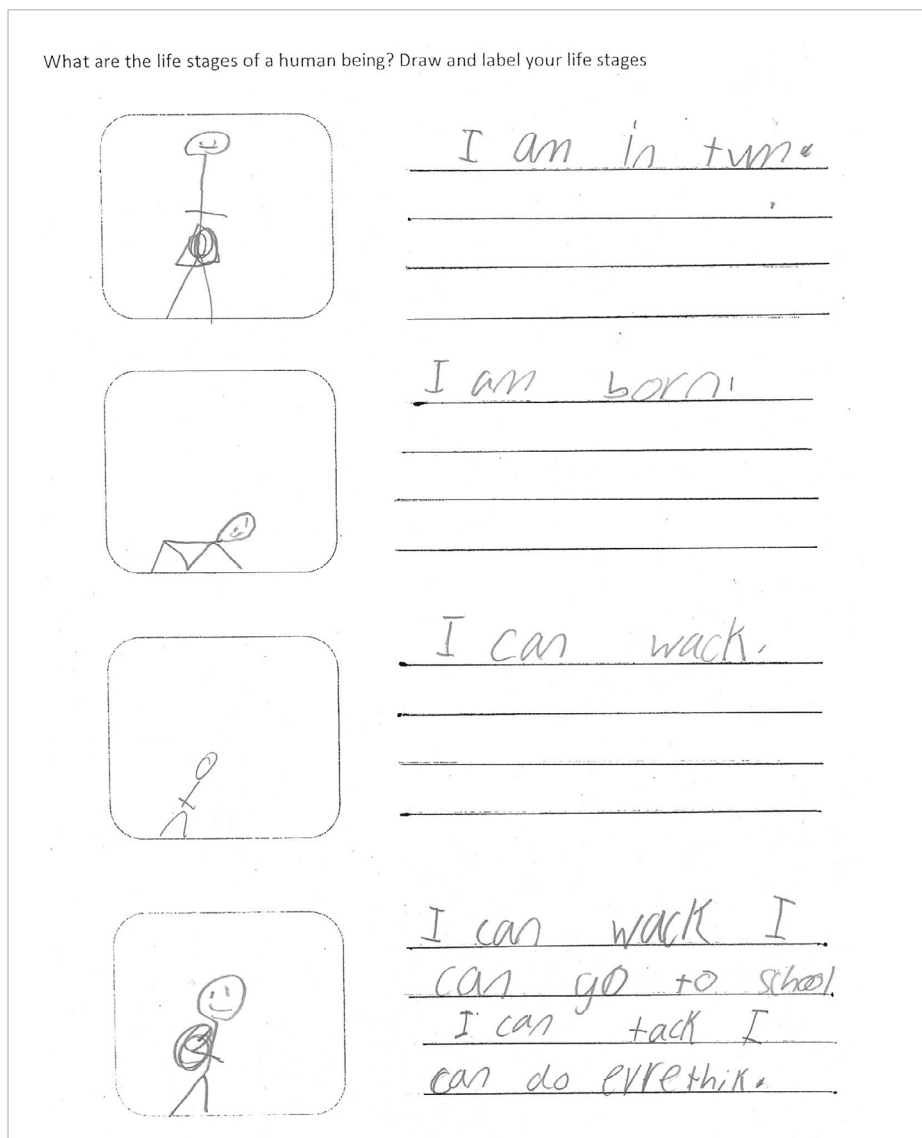 What are the life stages of a human being? Draw and label your life stages
I am in tum.
I am born.
I can wack.
I can wack I
can go to school.
I can tack I
can do evrethik.